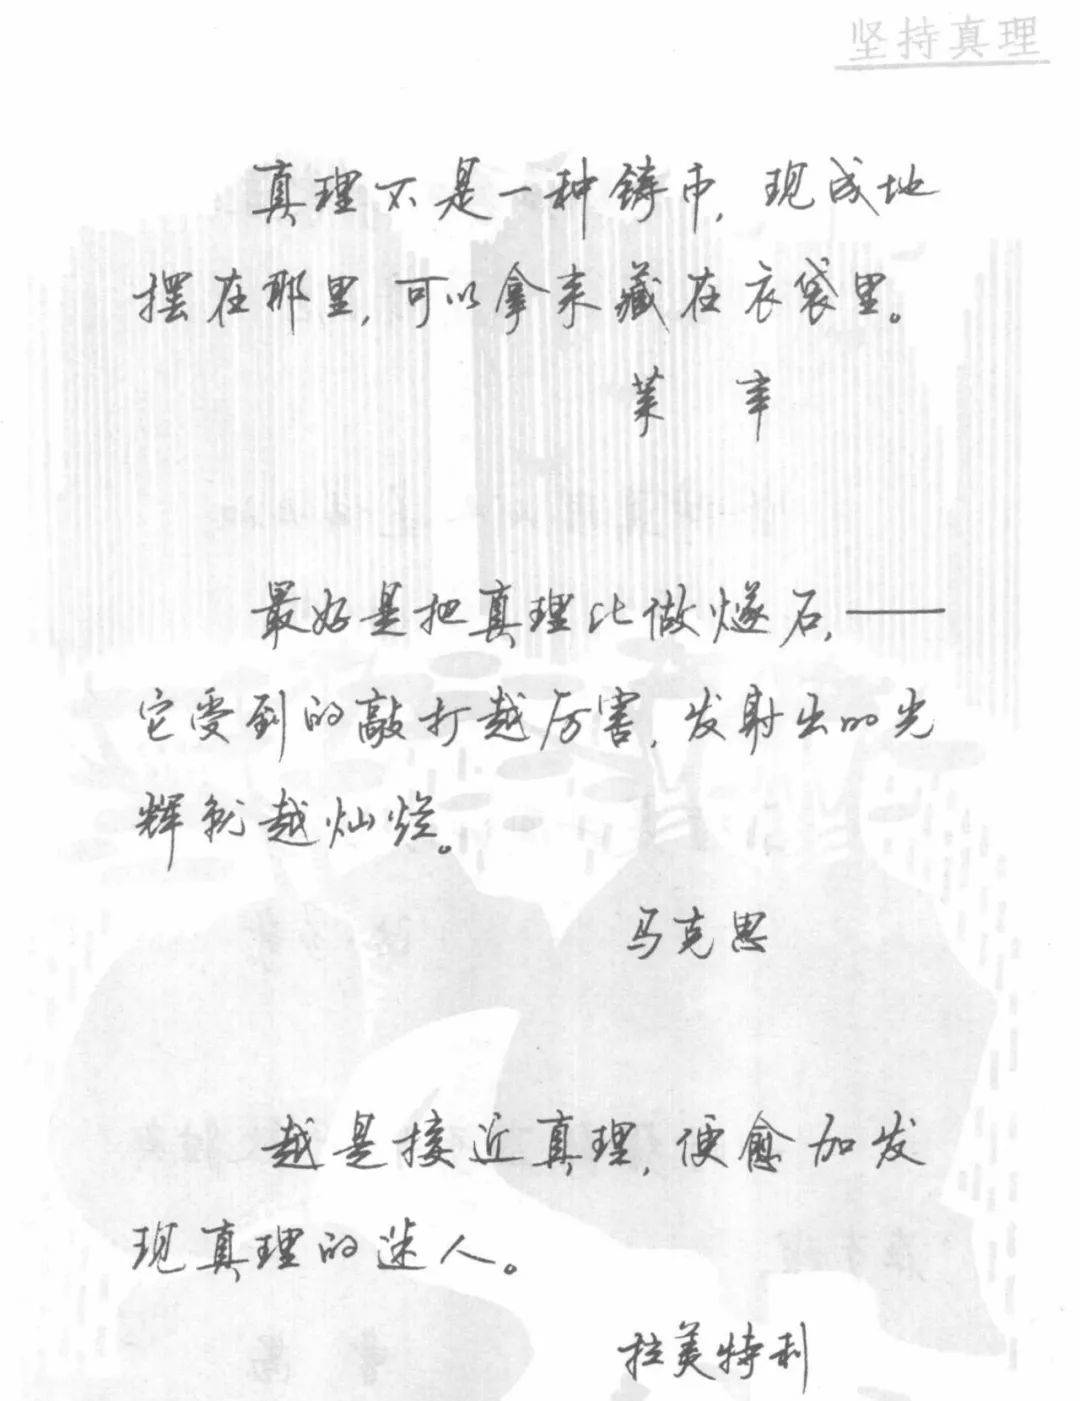 坚持真理
真理不是一种铸币,现成地
摆在那里,可以拿来藏在衣袋里。
莱 辛
最好是把真理比做燧石,——
它受到的敲打越厉害,发射出的光
辉就越灿烂。
马克思
越是接近真理,便愈加发
现真理的迷人。
拉美特利